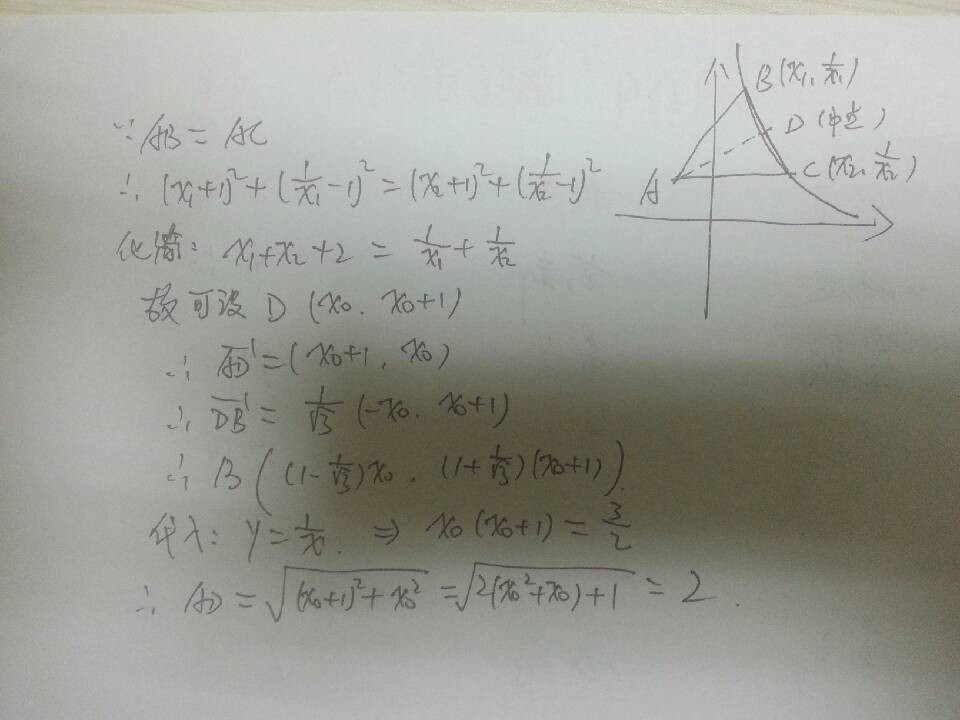 ∵ AB = AC
∴ (x₁+1)² + (1/x₁ - 1)² = (x₂+1)² + (1/x₂ - 1)²
化简: x₁+x₂+2 = 1/x₁ + 1/x₂
故可设 D (x₀, x₀+1)
∴ AD⃗ = (x₀+1, x₀)
∴ DB⃗ = 1/√3 (-x₀, x₀+1)
∴ B ( (1-1/√3)x₀, (1+1/√3)(x₀+1) )
代入: y = 1/x ⇒ x₀(x₀+1) = 3/2
∴ AD = √((x₀+1)²+x₀²) = √(2(x₀²+x₀)+1) = 2.
B (x₁, 1/x₁)
D (中点)
C (x₂, 1/x₂)
A